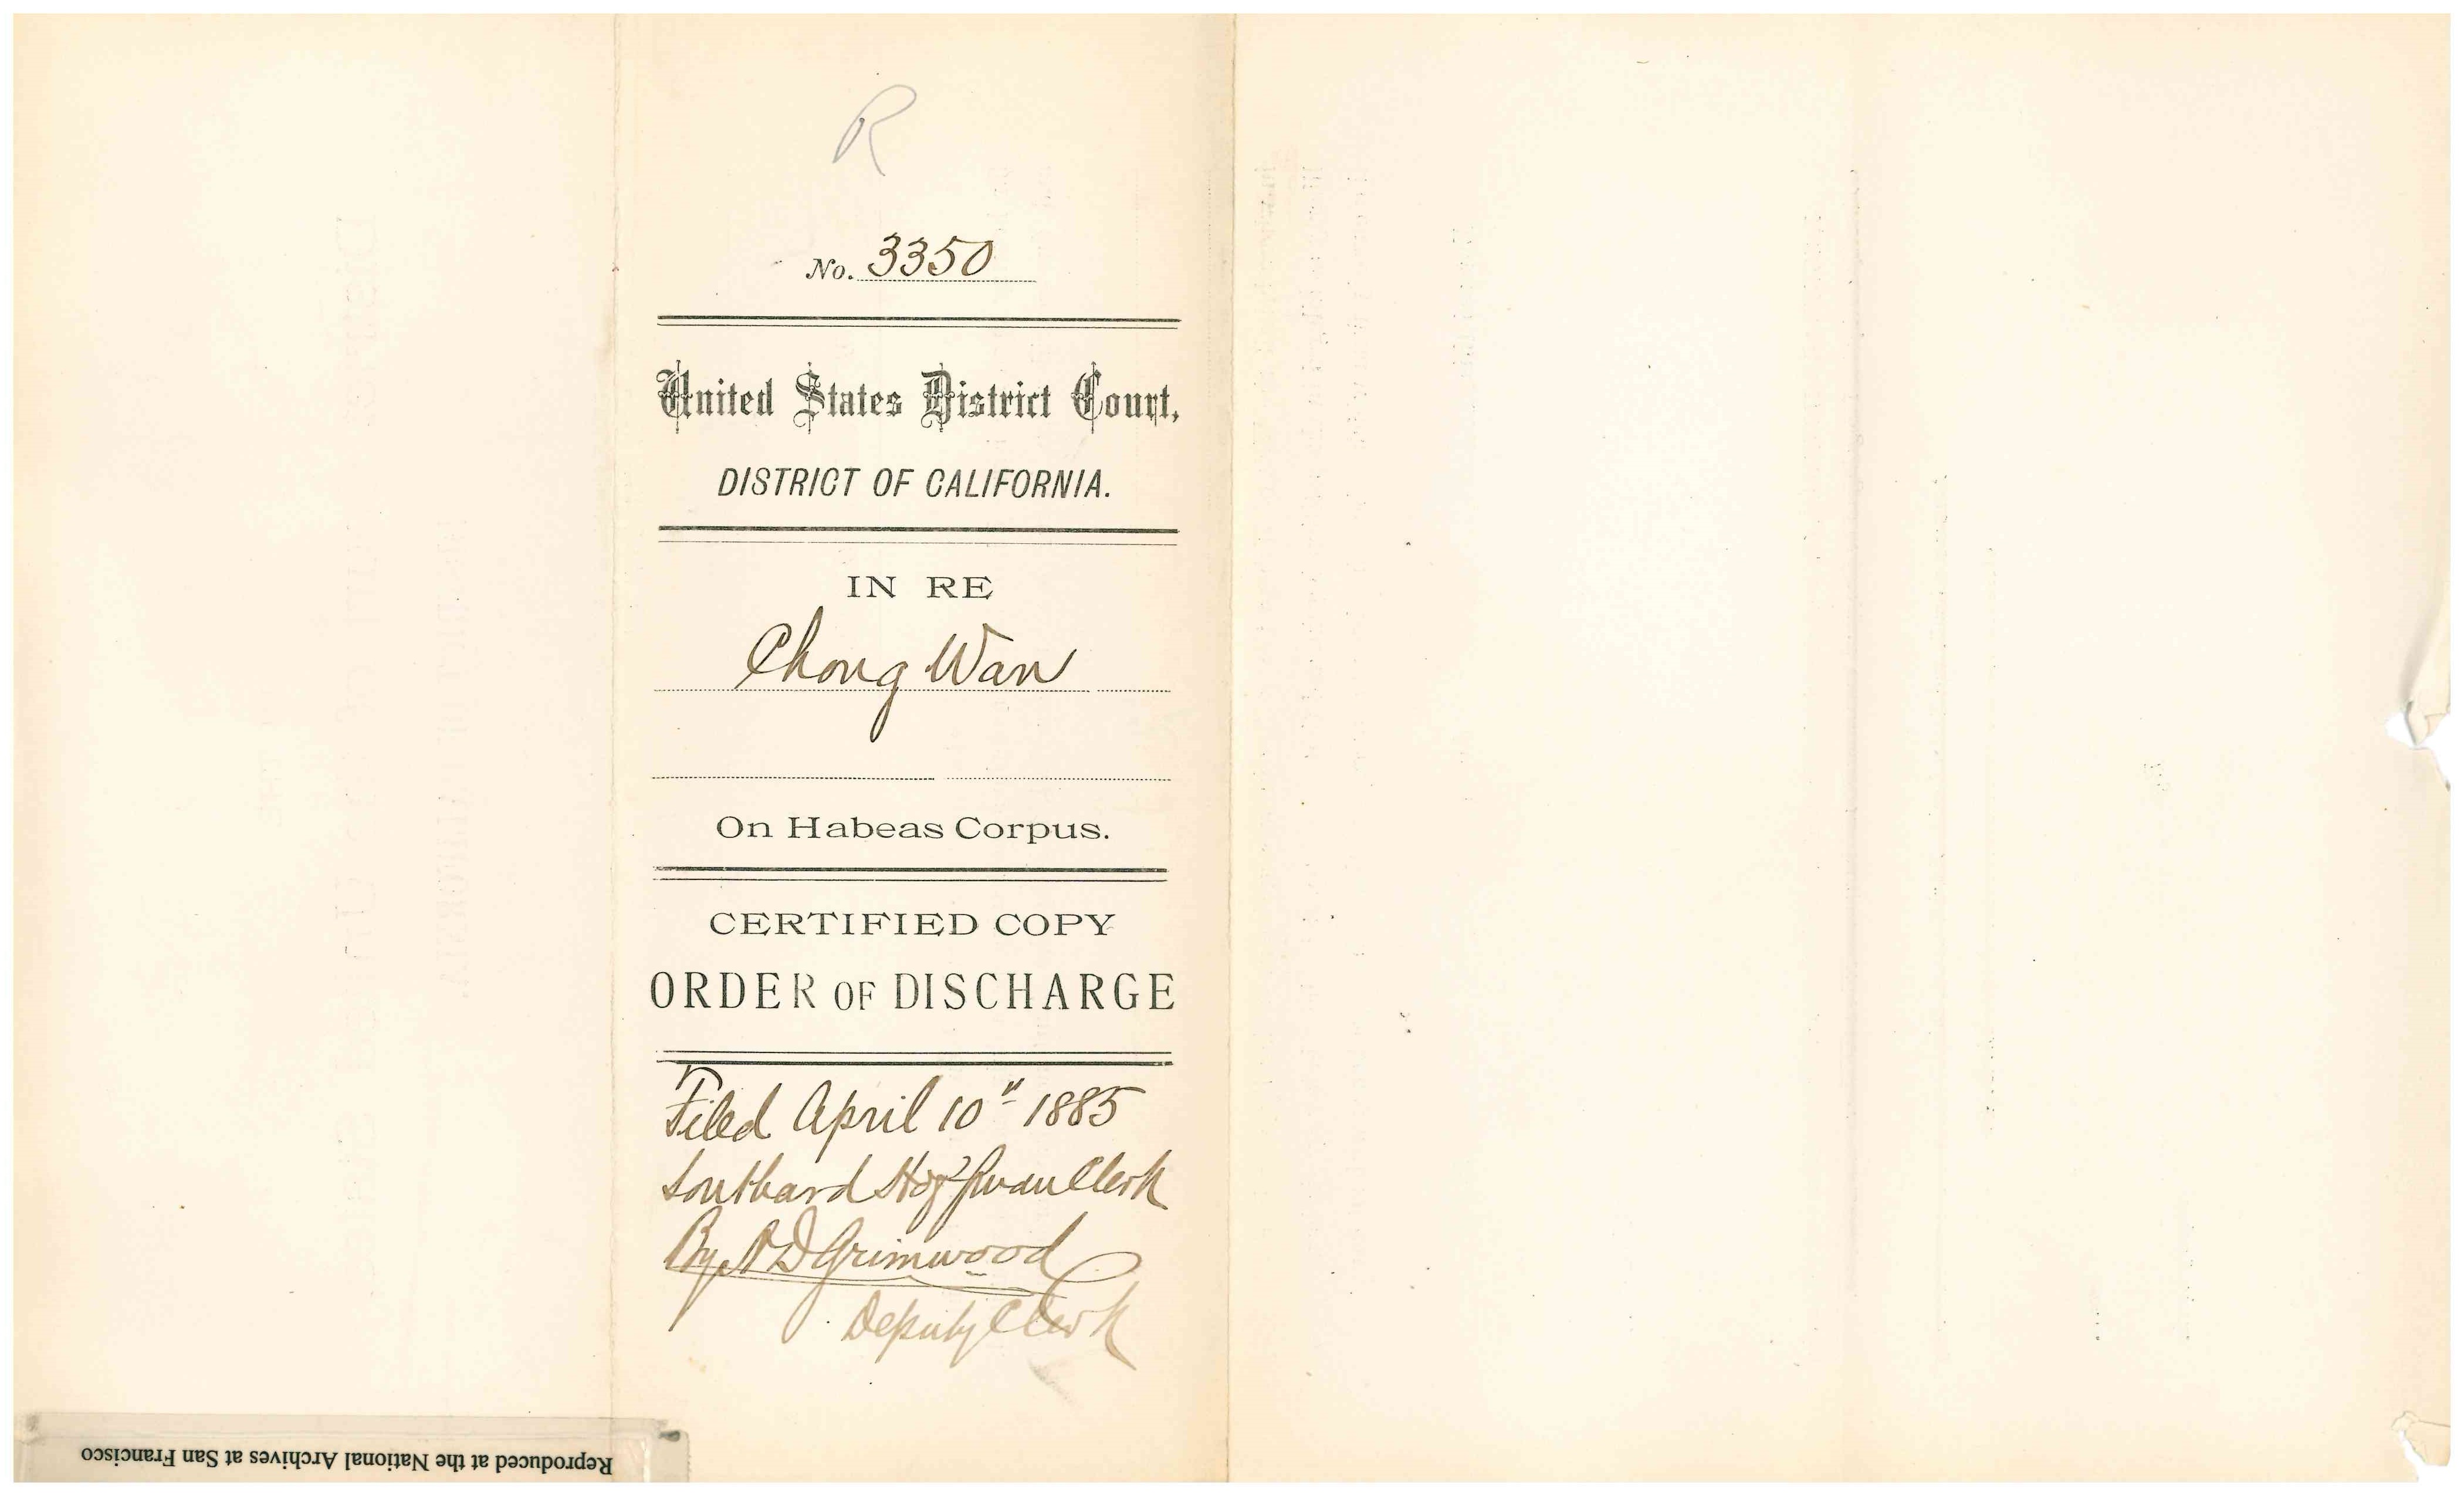 R
No. 3350
United States District Court,
DISTRICT OF CALIFORNIA.
IN RE
Chong Wan
On Habeas Corpus.
CERTIFIED COPY
ORDER OF DISCHARGE
Filed April 10" 1885
Southard Hoffman Clerk
By Grimwood
Deputy Clerk
Reproduced at the National Archives at San Francisco